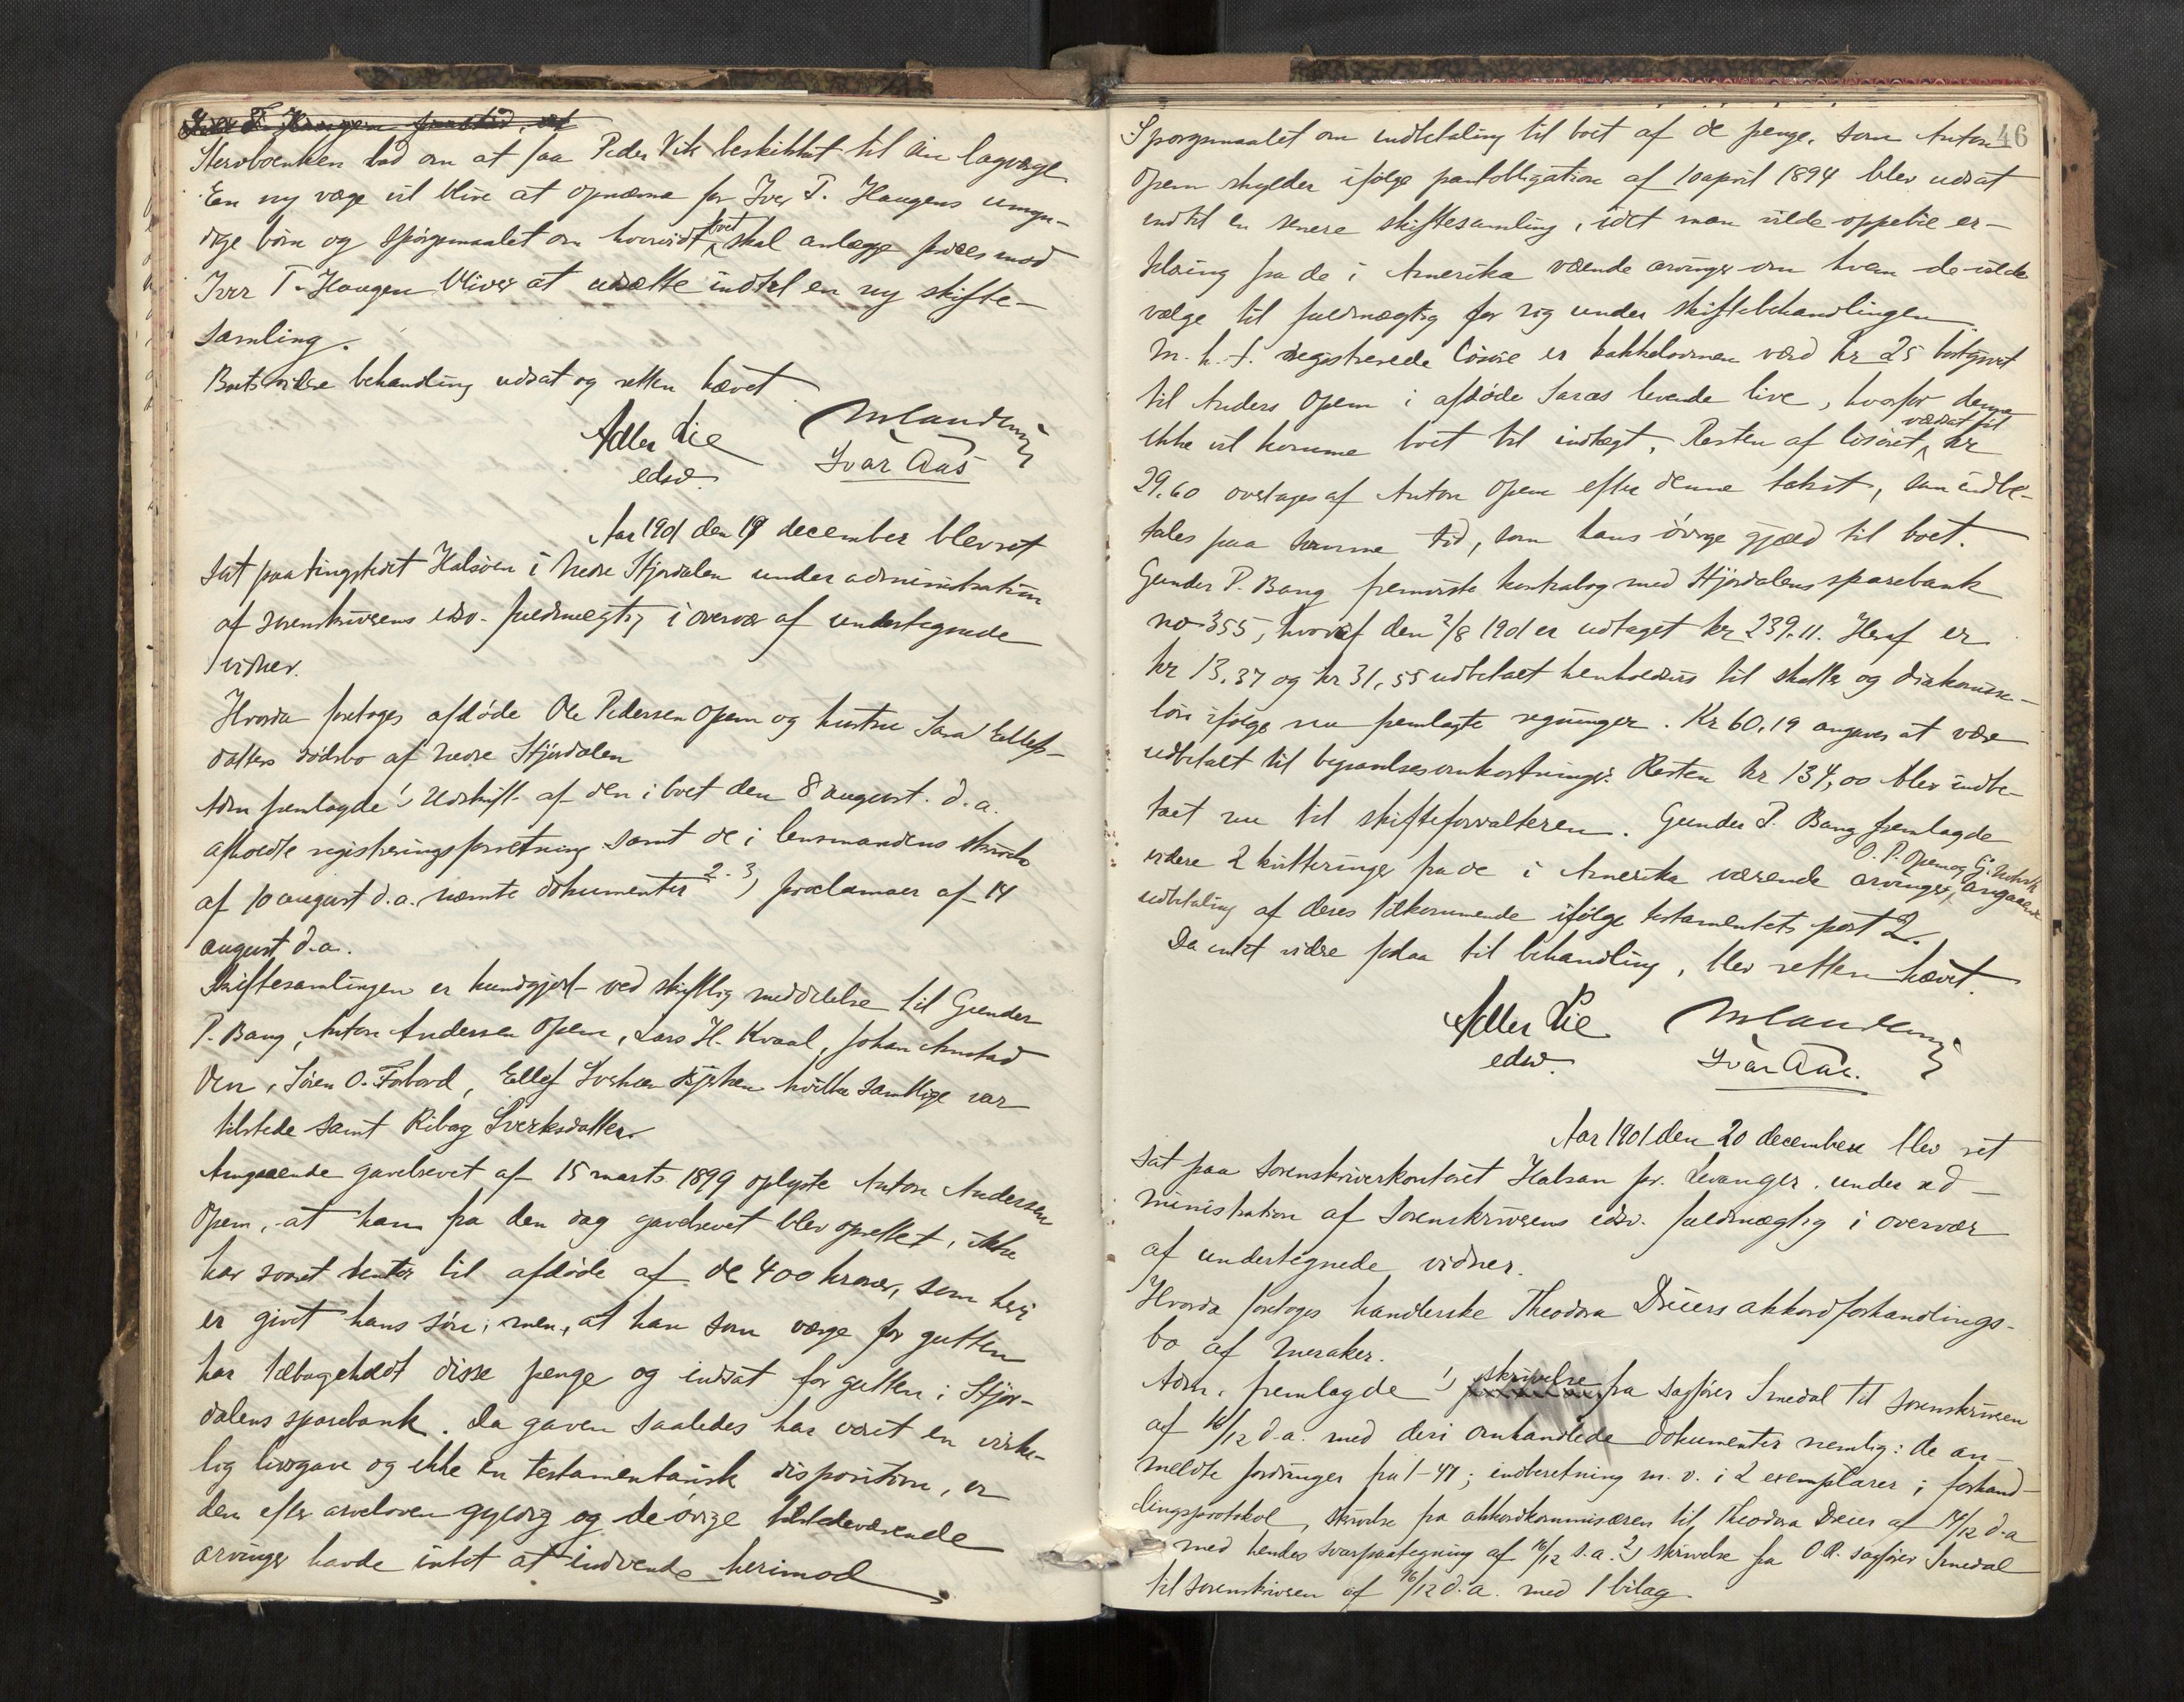 Iver T. Haugen forstod, at
Stervboenken bad om at faa Peder Vik beskikket til sin lagværge
En ny værge vil blive at opnævne for Iver T. Haugens umyn-
dige börn og spörgsmaalet om hvorvidt boet skal anlægge proces mod
Iver T. Haugen bliver at udsætte indtil en ny skifte-
samling.
Boets videre behandling udsat og retten hævet
Adler Lie
edsv.
Ivar Aas
Aar 1901 den 19 december blev ret
sat paa tingstedet Halsöen i Nedre Stjördalen under administration
af sorenskriverens edsv. fuldmægtig i overvær af undertegnede
vidner.
Hvorda foretoges afdöde Ole Pedersen Opem og hustru Sara Ellefs-
datters dödsbo af Nedre Stjördalen
Adm fremlagde 1) Udskrift af den i boet den 8 august d.a.
afholdte registreringsforretning samt de i lensmandens skrivelse
af 10 august d.a. nævnte dokumenter 2-3) proclamaer af 14
august d.a.
Skiftesamlingen er kundgjort ved skriftlig meddelelse til Gunder
P. Bang, Anton Andersen Opem, Lars H. Kvaal, Johan Arnstad
Ven, Sören O. Forbord, Ellef hvilke samtlige var
tilstede samt Ribog Sverksdatter
Angaaende gavebrevet af 15 marts 1899 oplyste Anton Andersen
Opem, at han fra den dag gavebrevet blev oprettet, ikke
har svaret renter til afdöde af de 400 kroner, som heri
er givet hans sön, men, at han som værge for gutten
har tilbageholdt disse penge og indsat for gutten i Stjör-
dalens sparebank. Da gaven saaledes har været en virke-
lig livsgave og ikke en testamentarisk disposition, er
den efter arveloven gyldig og de övrige tilstedeværende
arvinger havde intet at indvende herimod
46
Spörgsmaalet om indbetaling til boet af de penge, som Anton
Opem skylder ifölge pantobligation af 10 april 1894 blev udsat
indtil en senere skiftesamling, idet man vilde oppebie er-
klæring fra de i Amerika værende arvinger om hvem de vilde
vælge til fuldmægtig for sig under skiftebehandlingen
M.h.t. registrerede lösöre er kakkelovnen værd kr 25 bortgivet
til Anders Opem i afdöde Saras levende live, hvorfor denne
ikke vil komme boet til indtægt. Resten af lösöret, værdsat til kr
29.60 overtages af Anton Opem efter denne takst, som indbe-
tales paa samme tid, som hans övrige gjæld til boet.
Gunder P. Bang fremviste kontrabog med Stjördalens sparebank
no 355, hvoraf den 2/8 1901 er udtaget kr 239.11. Heraf er
kr 13.37 og kr 31,55 udbetalt henholdsvis til skatter og diakonisse-
lön ifölge nu fremlagte regninger. Kr 60.19 angaves at være
udbetalt til begravelsesomkostninger. Resten kr 134,00 blev indbe-
talt nu til skifteforvalteren. Gunder P. Bang fremlagde
videre 2 kvitteringer fra de i Amerika værende arvinger, O. P. Opem og G. angaaende
udbetaling af deres tilkommende ifölge testamentets post 2.
Da intet videre forelaa til behandling, blev retten hævet.
Adler Lie
edsv.
Ivar Aas.
Aar 1901 den 20 december blev ret
sat paa Sorenskriverkontoret Halsan pr. Levanger under ad-
ministration af Sorenskriverens edsv. fuldmægtig i overvær
af undertegnede vidner.
Hvorda foretoges handlerske Theodora Dreiers akkordforhandlings-
bo af Meraker.
Adm. fremlagde 1) skrivelse fra sagförer Smedal til Sorenskriveren
af 16/12 d.a. med deri omhandlede dokumenter nemlig: de an-
meldte fordringer fra 1-47; indberetning m.v. i 2 exemplarer; forhand-
lingsprotokol, skrivelse fra akkordkommisæren til Theodora Dreier af 14/12 d.a
med hendes svarpaategning af 16/12 d.a. 2) skrivelse fra O.R. sagförer Smedal
til Sorenskriveren af 16/12 d.a. med 1 bilag